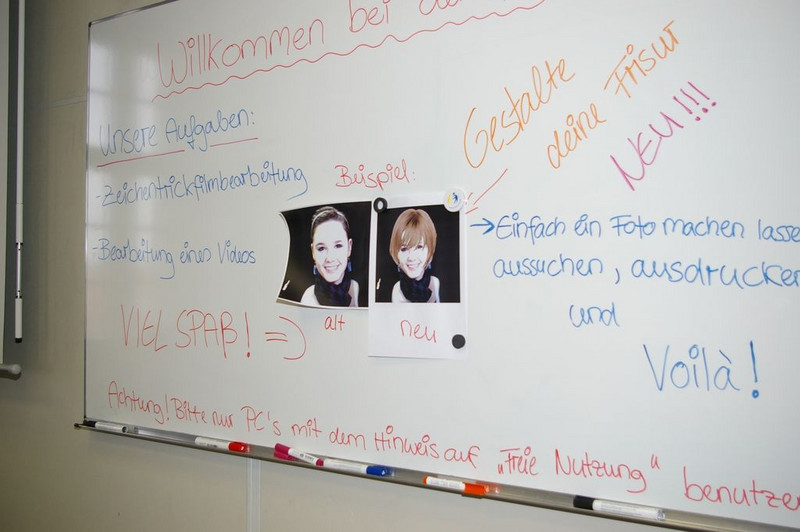 Willkommen bei
Unsere Aufgaben:
- Zeichentrickfilmbearbeitung
- Bearbeitung eines Videos
VIEL SPAß! =)
Beispiel:
alt
neu
Gestalte
deine Frisur
NEU!!!
→ Einfach ein Foto machen lasse
aussuchen, ausdrucken
und
Voilà!
Achtung! Bitte nur PC's mit dem Hinweis auf „Freie Nutzung“ benutzen